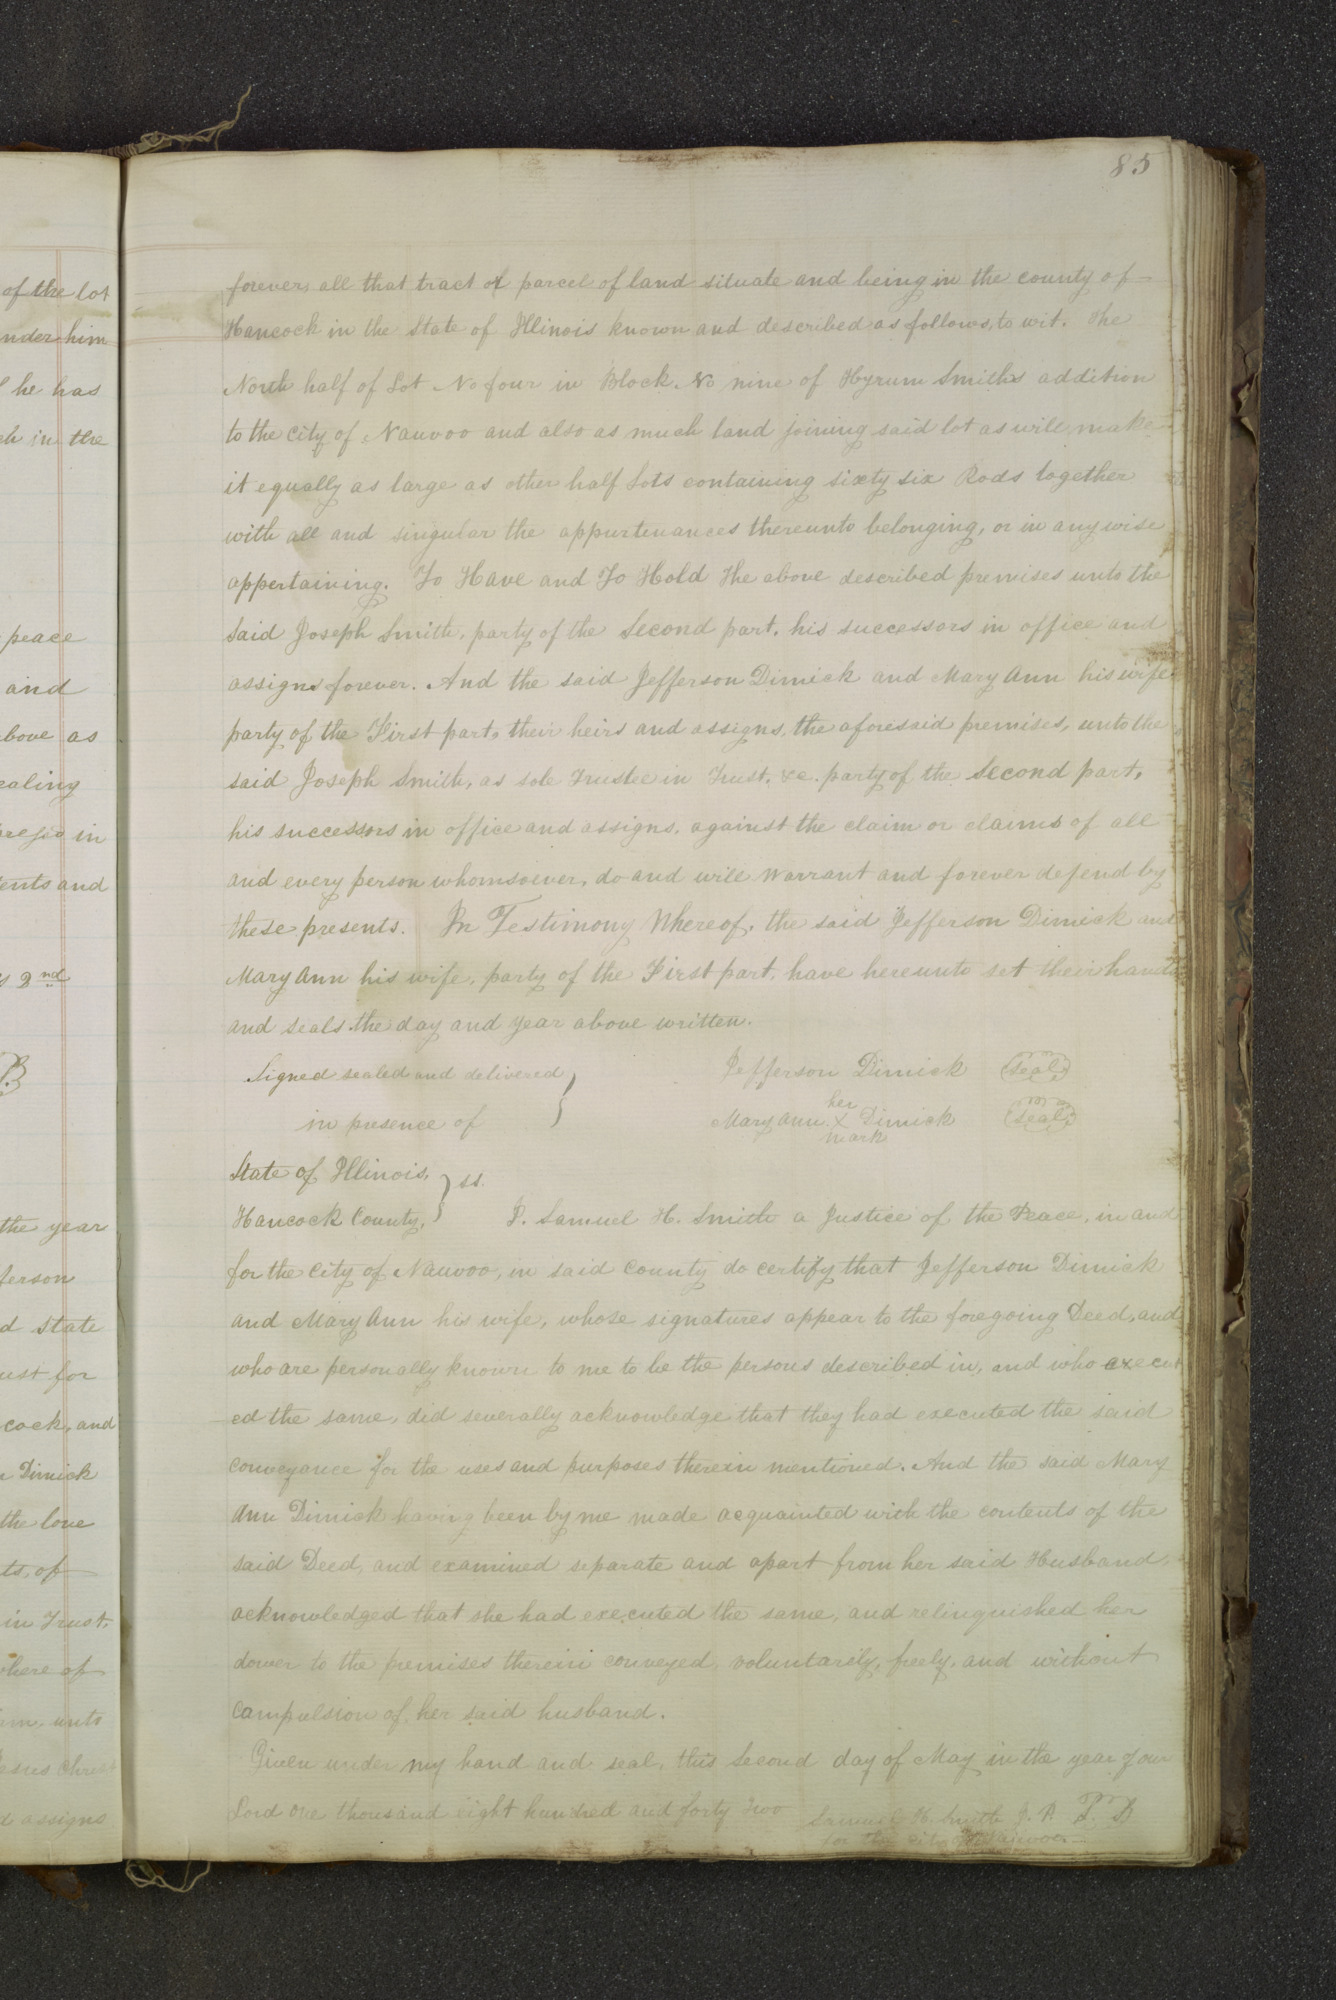 85
of the lot
nder him
he has
ch in the
peace
and
bove as
ealing
in
ents and
2nd
the year
ferson
d state
ust for
cock, and
n Dimick
the love
ts, of
in Trust,
where of
unto
esus Christ
d assigns
forever, all that tract of parcel of land situate and being in the county of
Hancock in the State of Illinois known and described as follows, to wit. The
North half of Lot No four in Block No nine of Hyrum Smiths addition
to the city of Nauvoo and also as much land joining said lot as will make
it equally as large as other half Lots containing sixty six Rods together
with all and singular the appurtenances thereunto belonging, or in any wise
appertaining. To Have and To Hold The above described premises unto the
said Joseph Smith, party of the Second part, his successors in office and
assigns forever. And the said Jefferson Dimick and Mary Ann his wife
party of the First part, their heirs and assigns, the aforesaid premises, unto the
said Joseph Smith, as sole Trustee in Trust, &c. party of the Second part,
his successors in office and assigns, against the claim or claims of all
and every person whomsoever, do and will Warrant and forever defend by
these presents. In Testimony Whereof, the said Jefferson Dimick and
Mary Ann his wife, party of the First part, have hereunto set their hands
and seals the day and year above written.
Signed sealed and delivered } Jefferson Dimick (seal)
in presence of
her
Mary Ann X Dimick (seal)
mark
State of Illinois, } ss.
Hancock County, I. Samuel H. Smith a Justice of the Peace, in and
for the City of Nauvoo, in said County do certify that Jefferson Dimick
and Mary Ann his wife, whose signatures appear to the foregoing Deed, and
who are personally known to me to be the persons described in, and who execut
ed the same, did severally acknowledge that they had executed the said
conveyance for the uses and purposes therein mentioned. And the said Mary
Ann Dimick having been by me made acquainted with the contents of the
said Deed, and examined separate and apart from her said Husband
acknowledged that she had executed the same, and relinquished her
dower to the premises therein conveyed, voluntarily, freely, and without
compulsion of her said husband.
Given under my hand and seal, this Second day of May in the year of our
Lord one thousand eight hundred and forty two Samuel H. Smith J. P.
for the City of Nauvoo